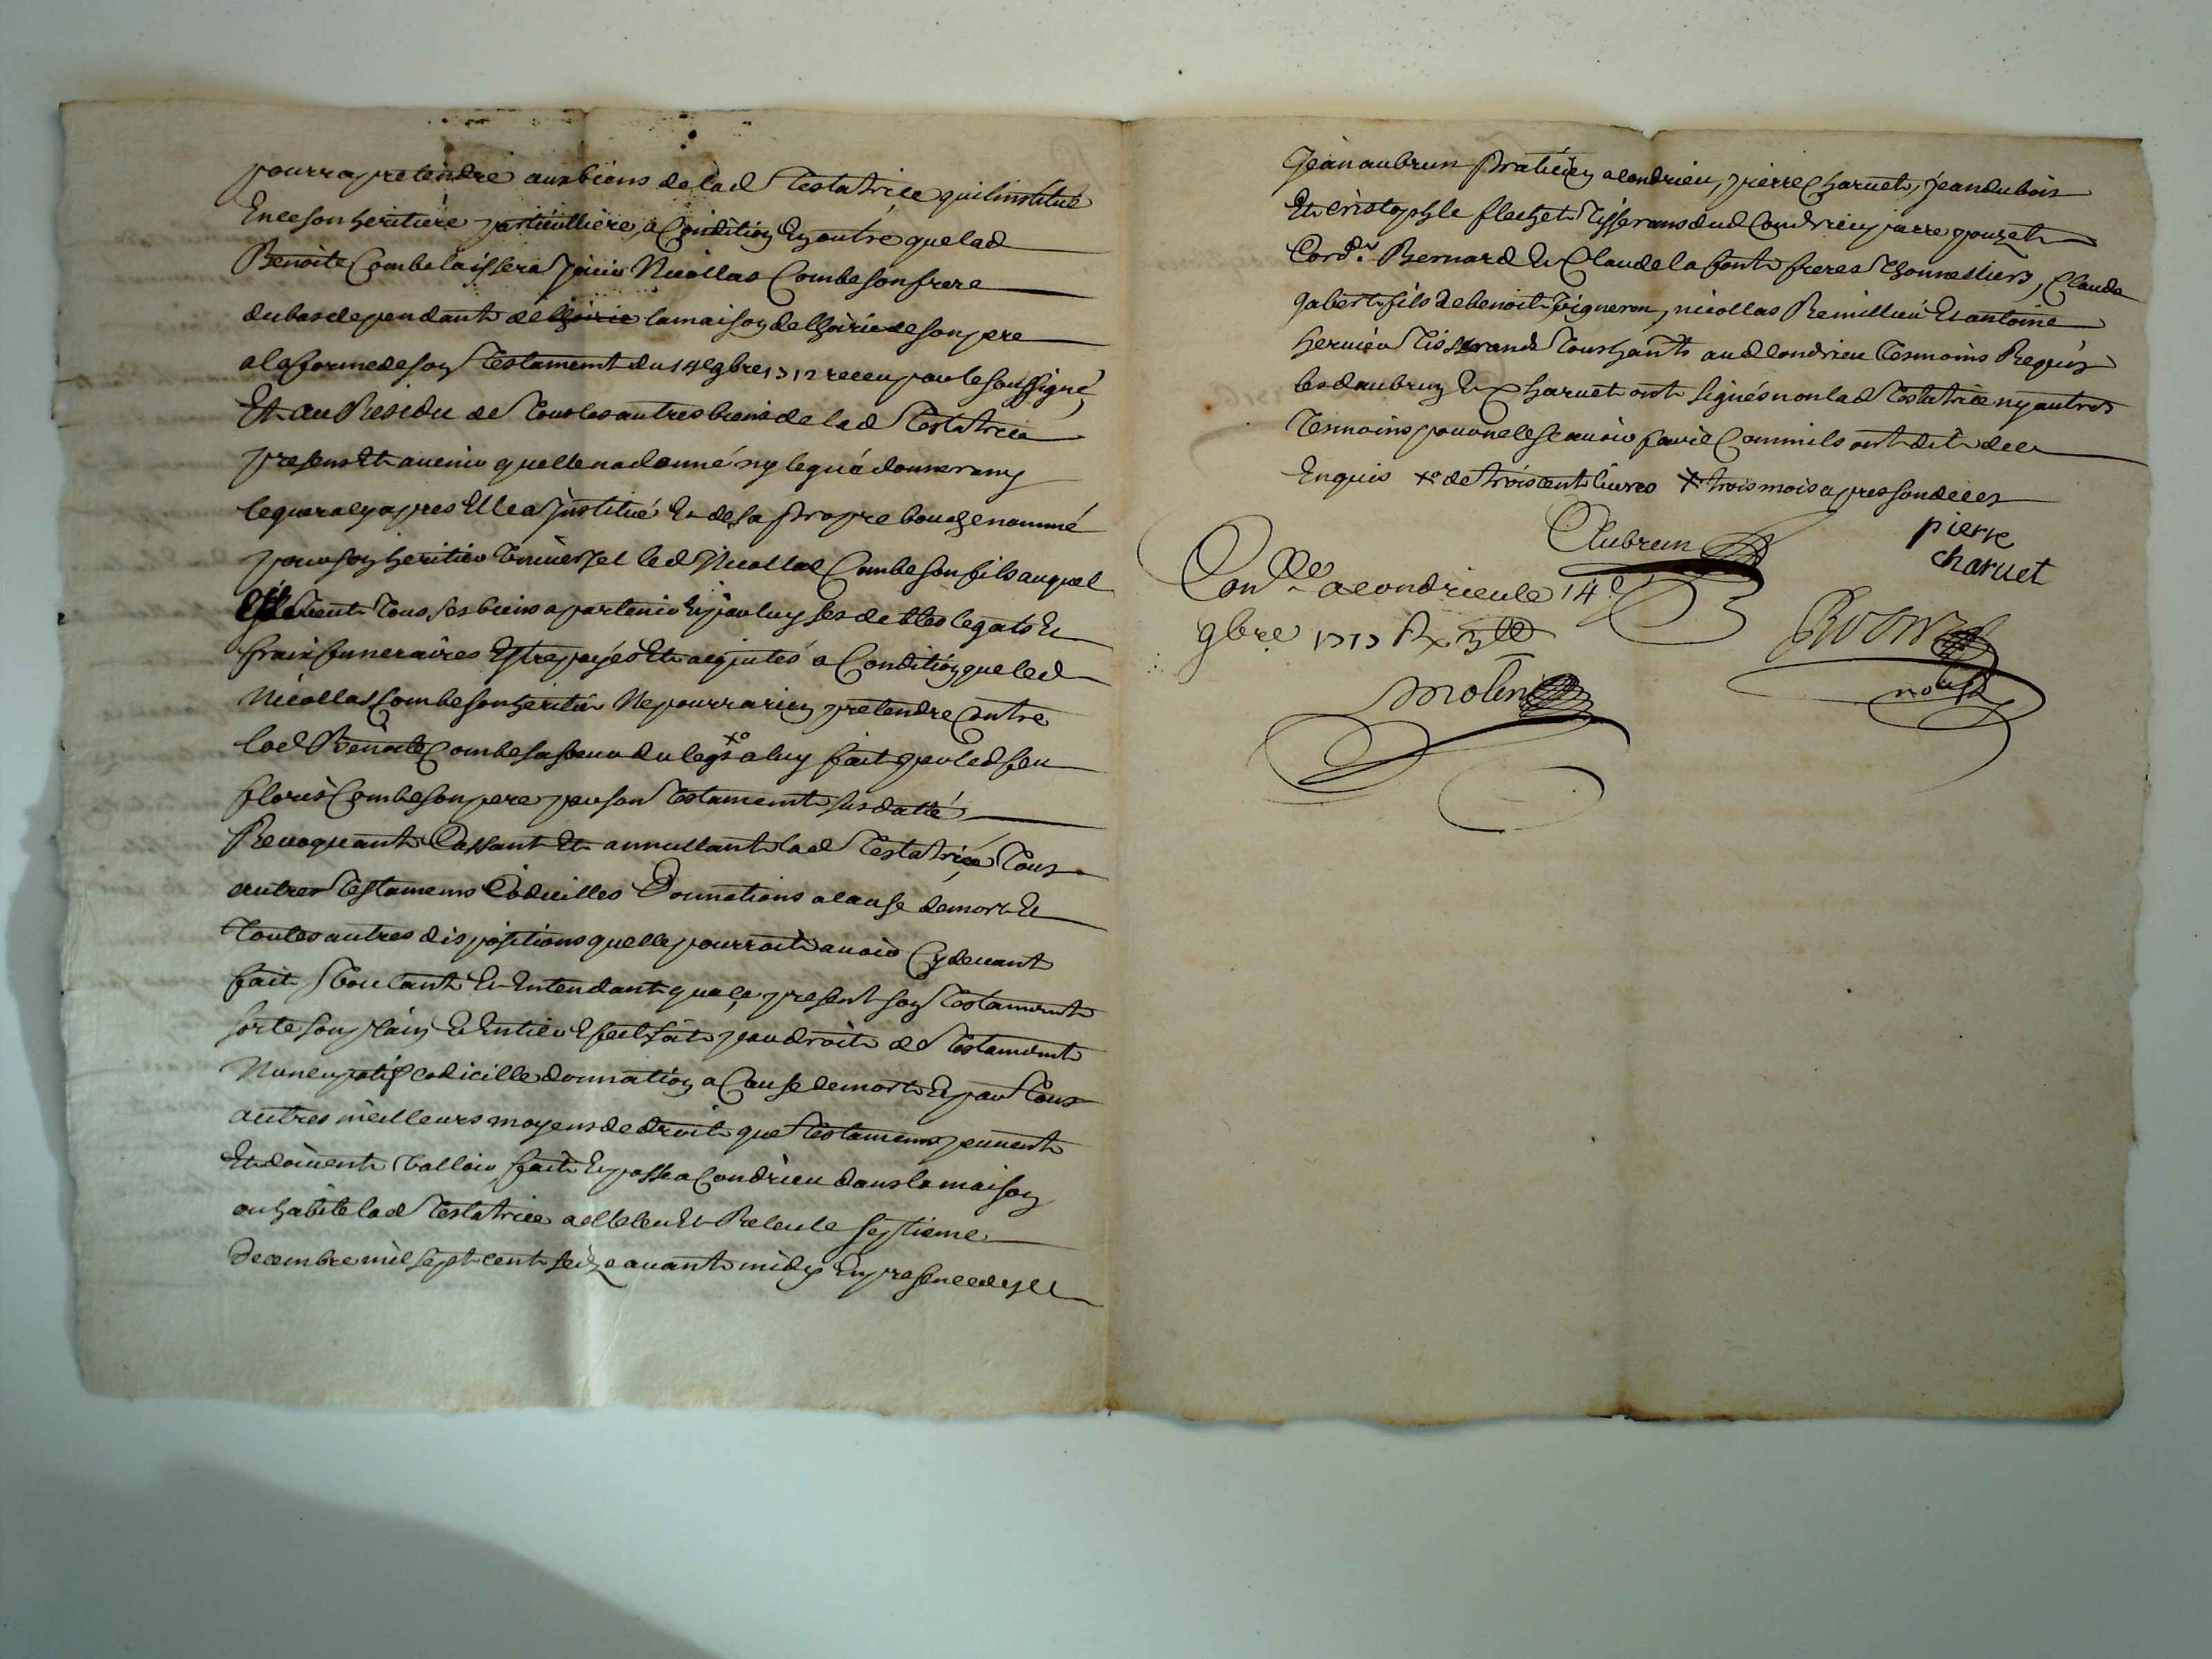 pourra pretendre aux biens de lad Testatrice quil institue
En ce son heritiere particulliere, a Condition En outre que lad
Benoite Combe laissera Jouir Nicollas Combe son frere
du bas dependant de la maison de de son pere
a la forme de son Testament du 14e 9bre 1712 receu par le soussigné
Et au Residu de Tous les autres biens de lad Testatrice
presens Et avenir quelle na donné ny legué donnera ny
leguera cy apres Elle a Institué Et de sa propre bouche nommé
pour son heritier Universel led Nicollas Combe son fils auquel
Tous ses biens apartenir Et par luy ses debtes legats Et
fraix funeraires Estre payés Et aquités a Condition que led
Nicollas Combe son heritier Ne pourra rien pretendre Contre
lad Benoite Combe sa seur du legs xo a luy fait par led feu
floris Combe son pere par son Testament susdatté
Revoquant Cassant Et annullant lad Testatrice Tous
autres Testamens Codicilles Donnations a cause de mort Et
Toutes autres dispositions quelle pourroit avoir Cy devant
fait Voulant Et Entendant que le present son Testament
sorte son plain Et Entier Effect soit par droit de Testament
Nuncupatif codicille donnation a Cause de mort Et par Tous
autres meilleurs moyens de droit que Testamens peuvent
Et doivent Valloir, fait Et passé a Condrieu dans la maison
ou habite lad Testatrice a elle leu Et Releu le septieme
Decembre mil sept cent seize avant midy En presence de
Jean aubrun Praticien a condrieu, pierre Charuet, Jean dubois
Et Cristophle flechet Tisserans dud Condrieu pierre pouzet
Cord.r Bernard Et Claude la font freres Thonnelliers, Claude
gabert fils de benoit Vigneron, nicollas Remillieu Et antoine
hervieu Tisserands Tous hants aud Condrieu Tesmoins Requis
lesd aubrun Et Charuet ont signés non lad Testatrice ny autres
Tesmoins pour ne le scavoir faire Comm ils ont dit de ce
Enquis xo de trois cents livres x trois mois apres son deces
Aubrun
pierre
charuet
Con.lle a condrieu le 14e
9bre 1717 R
molin